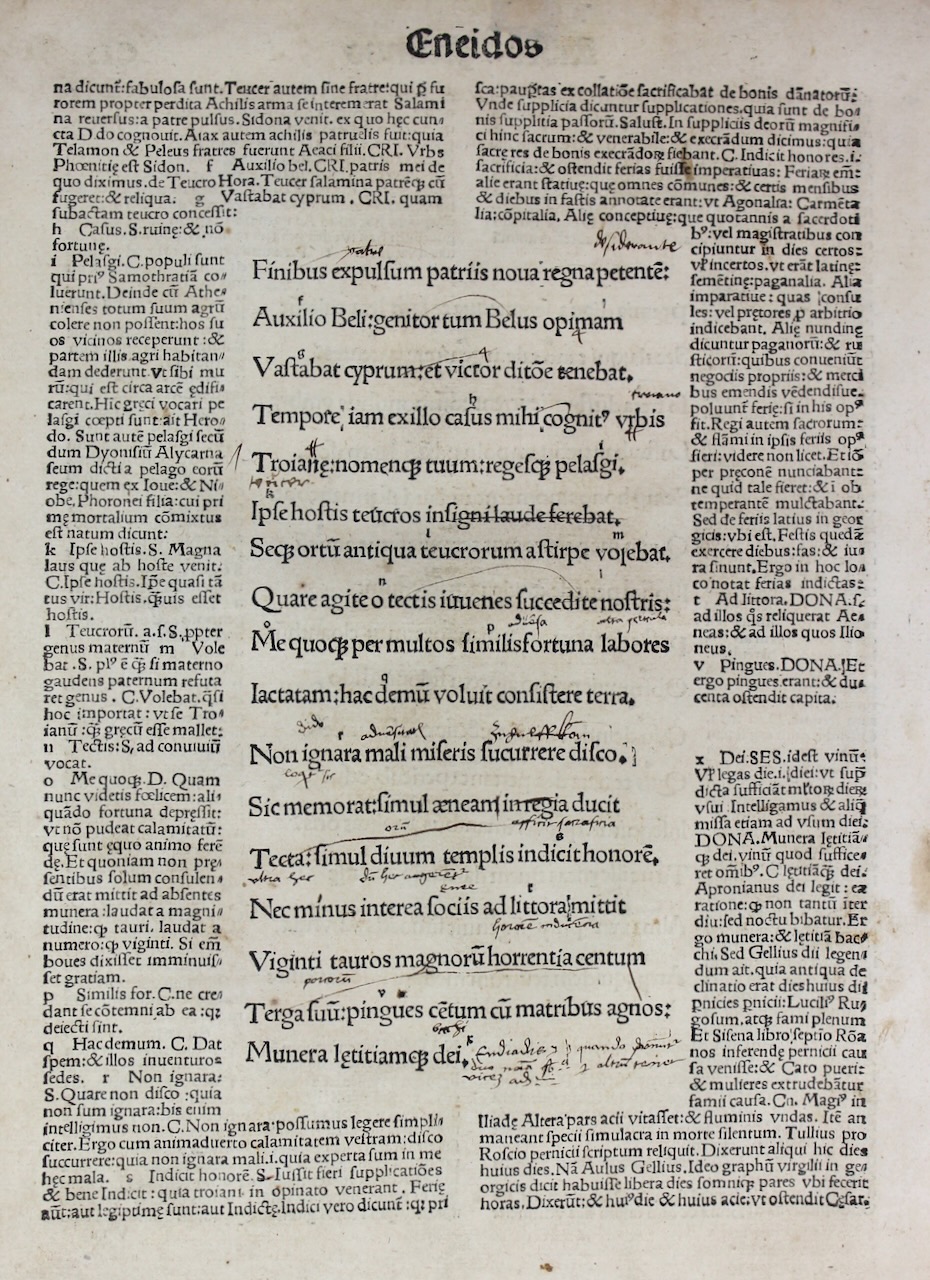 Eneidos
na dicunt̄: fabulosa sunt. Teucer autem sine fratre: qui p̱ fu
rorem propter perdita Achilis arma se interemerat Salami
na reuersus: a patre pulsus. Sidona venit. ex quo hęc cun⸗
cta D. do cognouit. Aiax autem achilis patruelis fuit: quia
Telamon & Peleus fratres fuerunt Aeaci filii. CRI. Vrbs
Phœnitię est Sidon. f Auxilio bel. CRI. patris mei de
quo diximus. de Teucro Hora. Teucer salamina patrēq; cū
fugeret: & reliqua. g Vastabat cyprum. CRI. quam
subactam teucro concessit:
h Casus. S. ruinę: & nō
fortunę.
i Pelasgi. C. populi sunt
qui pri⁹ Samothratiā co⸗
luerunt. Deinde cū Athe⸗
nienses totum suum agrū
colere non possent: hos su
os vicinos receperunt: &
partem illis agri habitan⸗
dam dederunt. vt sibi mu
rū: qui est circa arcē ędifi⸗
carent. Hic gręci vocari pe
lasgi cœpti sunt: ait Hero⸗
do. Sunt autē pelasgi secū
dum Dyonisiū Alycarna
seum dicti a pelago eorū
rege: quem ex Ioue: & Ni⸗
obe, Phoronei filia: cui pri
mę mortalium cōmixtus
est natum dicunt:
k Ipse hostis. S. Magna
laus que ab hoste venit.
C. Ipse hostis. Ipē quasi tā
tus vir: Hostis. q̄uis esset
hostis.
l Teucrorū. a. s. S. ppter
genus maternū m Vole
bat. S. pl⁹ ē q̄ si materno
gaudens paternum refuta
ret genus. C. Volebat. q̄si
hoc importat: vt se Tro⸗
ianū: q̄ gręcū esse mallet:
n Tectis: S, ad conuiuiū
vocat.
o Me quoq;. D. Quam
nunc videtis fœlicem: ali⸗
quādo fortuna depressit:
vt nō pudeat calamitatū:
quę sunt ęquo animo ferē
dę. Et quoniam non pre⸗
sentibus solum consulen⸗
dū erat mittit ad absentes
munera: laudat a magni⸗
tudine: q̱ tauri. laudat a
numero: q̱ viginti. Si em̄
boues dixisset imminuis⸗
set gratiam.
p Similis for. C. ne cre⸗
dant se cōtemni ab ea: q;
deiecti sint.
q Hac demum. C. Dat
spem: & illos inuenturos
sedes. r Non ignara:
S. Quare non disco: quia
non sum ignara: bis enim
intelligimus non. C. Non ignara: possumus legere simpli⸗
citer. Ergo cum animaduerto calamitatem vestram: disco
succurrere: quia non ignara mali. i. quia experta sum in me
hęc mala. s Indicit honorē. S. Iussit fieri supplicatiōes
& bene Indicit: quia troiani in opinato venerant. Ferię
aūt: aut legiptimę sunt: aut Indictę. Indici vero dicunt̄: q; pri
Finibus expulsum patriis noua regna petentē:
Auxilio Beli: genitor tum Belus opimam
Vastabat cyprum: et victor ditōe tenebat.
Tempore, iam ex illo casus mihi cognit⁹ vrbis
Troianę: nomenq; tuum: regesq; pelasgi.
Ipse hostis teucros insigni laude ferebat.
Seq; ortū antiqua teucrorum a stirpe volebat.
Quare agite o tectis iuuenes succedite nostris:
Me quoq; per multos similis fortuna labores
Iactatam: hac demū voluit consistere terra.
Non ignara mali miseris succurrere disco.
Sic memorat: simul æneam in regia ducit
Tecta: simul diuum templis indicit honorē.
Nec minus interea sociis ad littora mittit
Viginti tauros magnorū horrentia centum
Terga suū: pingues cētum cū matribus agnos:
Munera lętitiamq; dei.
sca: paup̱tas ex collatiōe sacrificabat de bonis dānatorū:
Vnde supplicia dicuntur supplicationes. quia sunt de bo⸗
nis supplitia passorū. Salust. In suppliciis deorū magnifi⸗
ci hinc sacrum: & venerabile: & execrādum dicimus: quia
sacrę res de bonis execrādoꝝ fiebant. C. Indicit honores. i.
sacrificia: & ostendit ferias fuisse imperatiuas: Feriaꝝ em̄:
alie erant statiuę: que omnes cōmunes: & certis mensibus
& diebus in fastis annotate erant: vt Agonalia: Carmēta
lia; cōpitalia. Alię conceptiuę: que quotannis a sacerdoti
b⁹: vel magistratibus con
cipiuntur in dies certos:
vl̄ incertos. vt erāt latinę:
semētinę: paganalia. Alia
imparatiue: quas consu
les: vel pretores p arbitrio
indicebant. Alię nundinę
dicuntur paganorū: & ru
sticorū: quibus conueniūt
negociis propriis: & merci
bus emendis vēdendisue.
poluunt̄ ferię: si in his op⁹
fit. Regi autem sacrorum:
& flāmi in ipsis feriis op⁹
fieri: videre non licet. Et iō
per pręconē nunciabant:
ne quid tale fieret: & i ob
temperantē mulctabant.
Sed de feriis latius in geor
gicis: vbi est. Festis quedā
exercere diebus: fas: & iu⸗
ra sinunt. Ergo in hoc lo⸗
co notat ferias indictas:
t Ad littora. DONA. s.
ad illos q̄s reliquerat Ae⸗
neas: & ad illos quos Ilio
neus.
v Pingues. DONA. Et
ergo pingues. erant: & du⸗
centa ostendit capita.
x Dei. SES. idest vinū:
Vl̄ legas die. i. diei: vt sup̄
dicta sufficiāt m̄ltoꝝ dieꝝ
vsui. Intelligamus & aliq̄
missa etiam ad vsum diei.
DONA. Munera lętitiā⸗
q; dei. vinū quod suffice⸗
ret om̄ib⁹. C lętitiāq; dei.
Apronianus dei legit: ea
ratione: q̱ non tantū iter
diu: sed noctu bibatur. Er
go munera: & lętitiā bac⸗
chi. Sed Gellius dii legen⸗
dum ait. quia antiqua de
clinatio erat dies huius dii
pnicies pnicii: Lucili⁹ Ru⸗
gosum. atq; fami plenum
Et Sisena libro septio Rōa
nos inferendę pernicii cau
sa venisse: & Cato pueri:
& mulieres extrudebātur
famii causa. Cn. Magi⁹ in
Iliade Altera pars acii vitasset: & fluminis vndas. Itē an
maneant specii simulacra in morte silentum. Tullius pro
Roscio pernicii scriptum reliquit. Dixerunt aliqui hic dies
huius dies. Nā Aulus Gellius. Ideo graphū virgilii in ge⸗
orgicis dicit habuisse libera dies somniq; pares vbi fecerit
horas. Dixerūt: & hui⁹ die & huius acie: vt ostendit Cęsar.